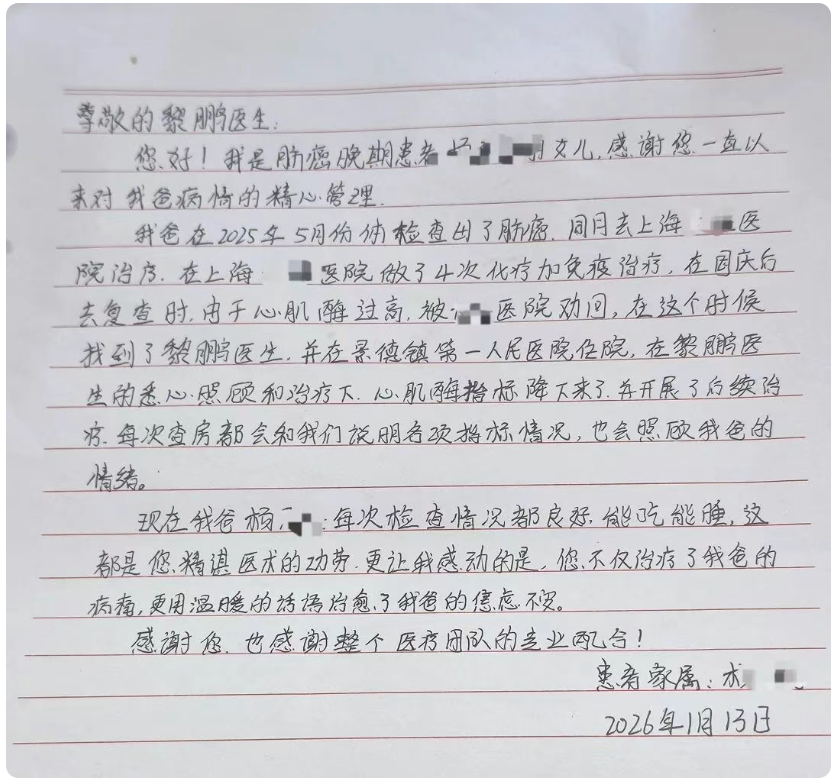 尊敬的黎鹏医生:
您好!我是肺癌晚期患者 女儿,感谢您一直以
来对我爸病情的精心管理.
我爸在2025年5月份体检查出了肺癌.同月去上海 医
院治疗.在上海 医院做了4次化疗加免疫治疗,在国庆后
去复查时,由于心肌酶过高,被 医院劝回,在这个时候
找到了黎鹏医生,并在景德镇第一人民医院住院,在黎鹏医
生的悉心照顾和治疗下.心肌酶指标降下来了.并开展了后续治
疗.每次查房都会和我们说明各项指标情况,也会照顾我爸的
情绪。
现在我爸杨 每次检查情况都良好.能吃能睡,这
都是您精谌医术的功劳.更让我感动的是,您不仅治疗了我爸的
病痛,更用温暖的话语治愈了我爸的焦虑不安。
感谢您.也感谢整个医疗团队的专业配合!
患者家属:
2026年1月13日